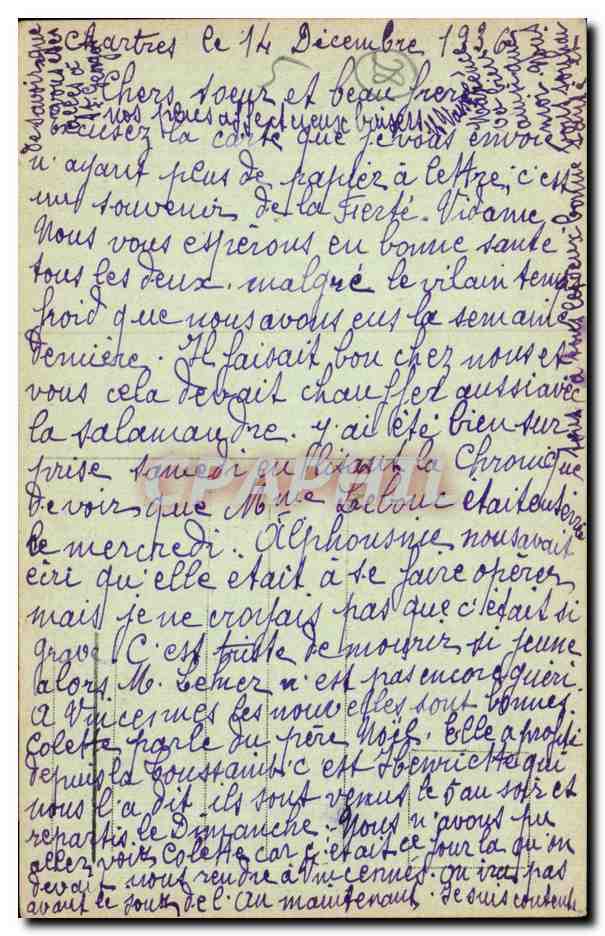 Chartres le 14 Décembre 1936
Chers soeur et beau frère
nos plus affectueux baisers
excusez la carte que je vous envoie
n'ayant plus de papier à lettre, c'est
un souvenir de la Ferté-Vidame
Nous vous espérons en bonne santé
tous les deux. malgré le vilain temps
froid que nous avons eus la semaine
dernière. Il faisait bon chez nous et
vous cela devait chauffer aussi avec
la salamandre. J'ai été bien sur
prise samedi en lisant la Chronique
de voir que Mme Lebouc était enterrée
le mercredi. Alphonsine nous avait
écri qu'elle etait à se faire opérer
mais je ne croyais pas que c'était si
grave. C'est triste de mourir si jeune
alors M. Lemer n'est pas encore guéri.
A Vincennes les nouvelles sont bonnes.
Colette parle du père Noël. Elle a profité
depuis la Toussaint c'est Henriette qui
nous l'a dit ils sont venus le 5 au soir et
repartis le Dimanche. Nous n'avons pu
aller voir Colette car c'était ce jour la qu'on
devait nous rendre à Vincennes. On ira pas
avant le jour de l'an maintenant. Je suis contente
de savoir que
vous
à
tous les deux bonne
CPARAMA
28